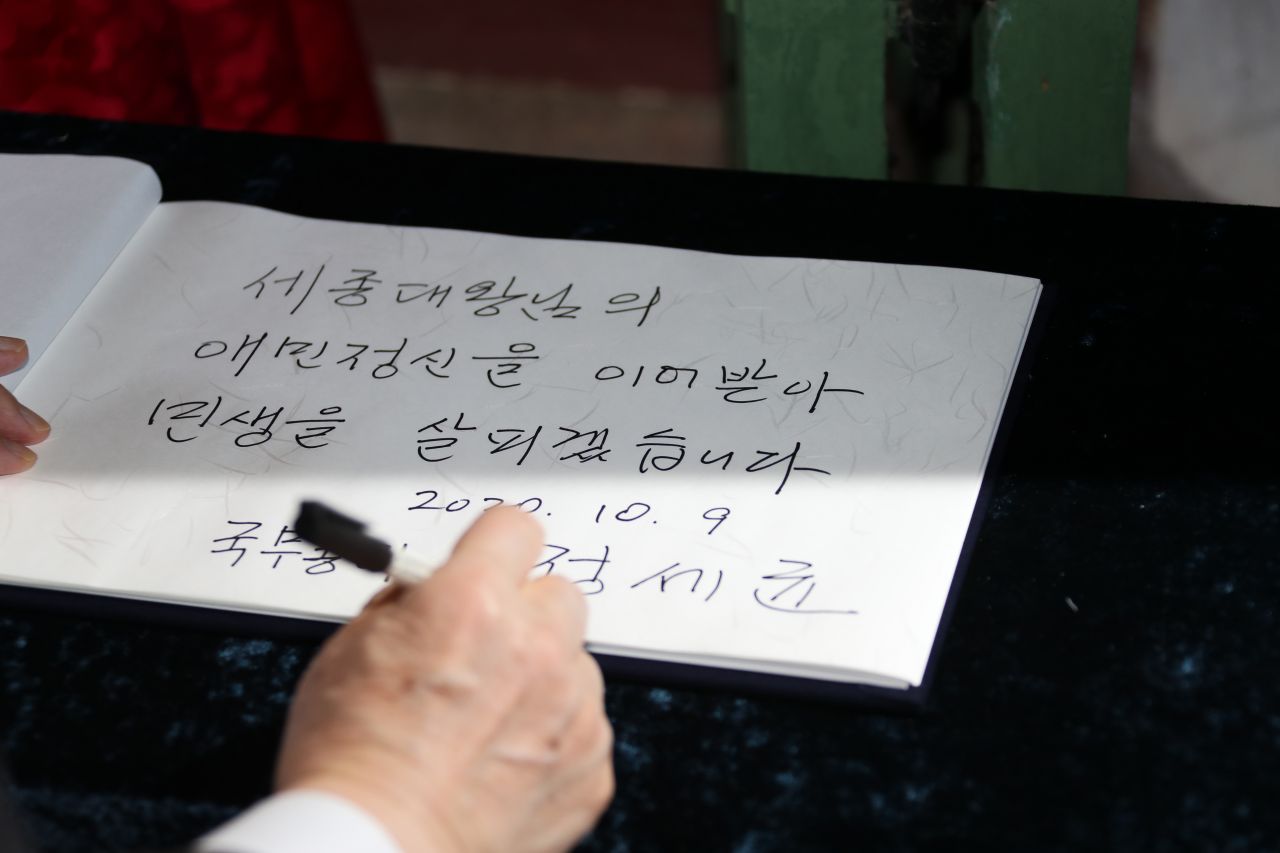 세종대왕님의
애민정신을 이어받아
민생을 살피겠습니다
2020. 10. 9
정세균